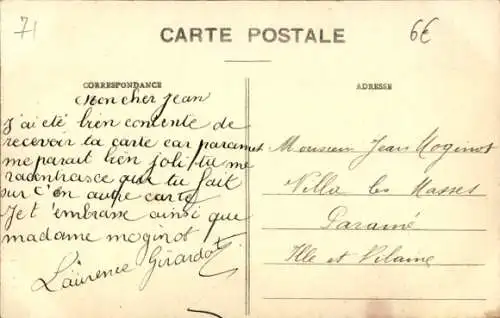 71
6€
CARTE POSTALE
CORRESPONDANCE
ADRESSE
Mon cher Jean
J'ai été bien contente de
recevoir la carte car paramet
me parait bien joli tu me
racontras ce que tu fait
sur c'en autre carte
Je t'embrasse ainsi que
madame moginot
Laurence Girardot
Monsieur Jean Moginot
Villa les Masses
Paramé
Ille et Vilaine